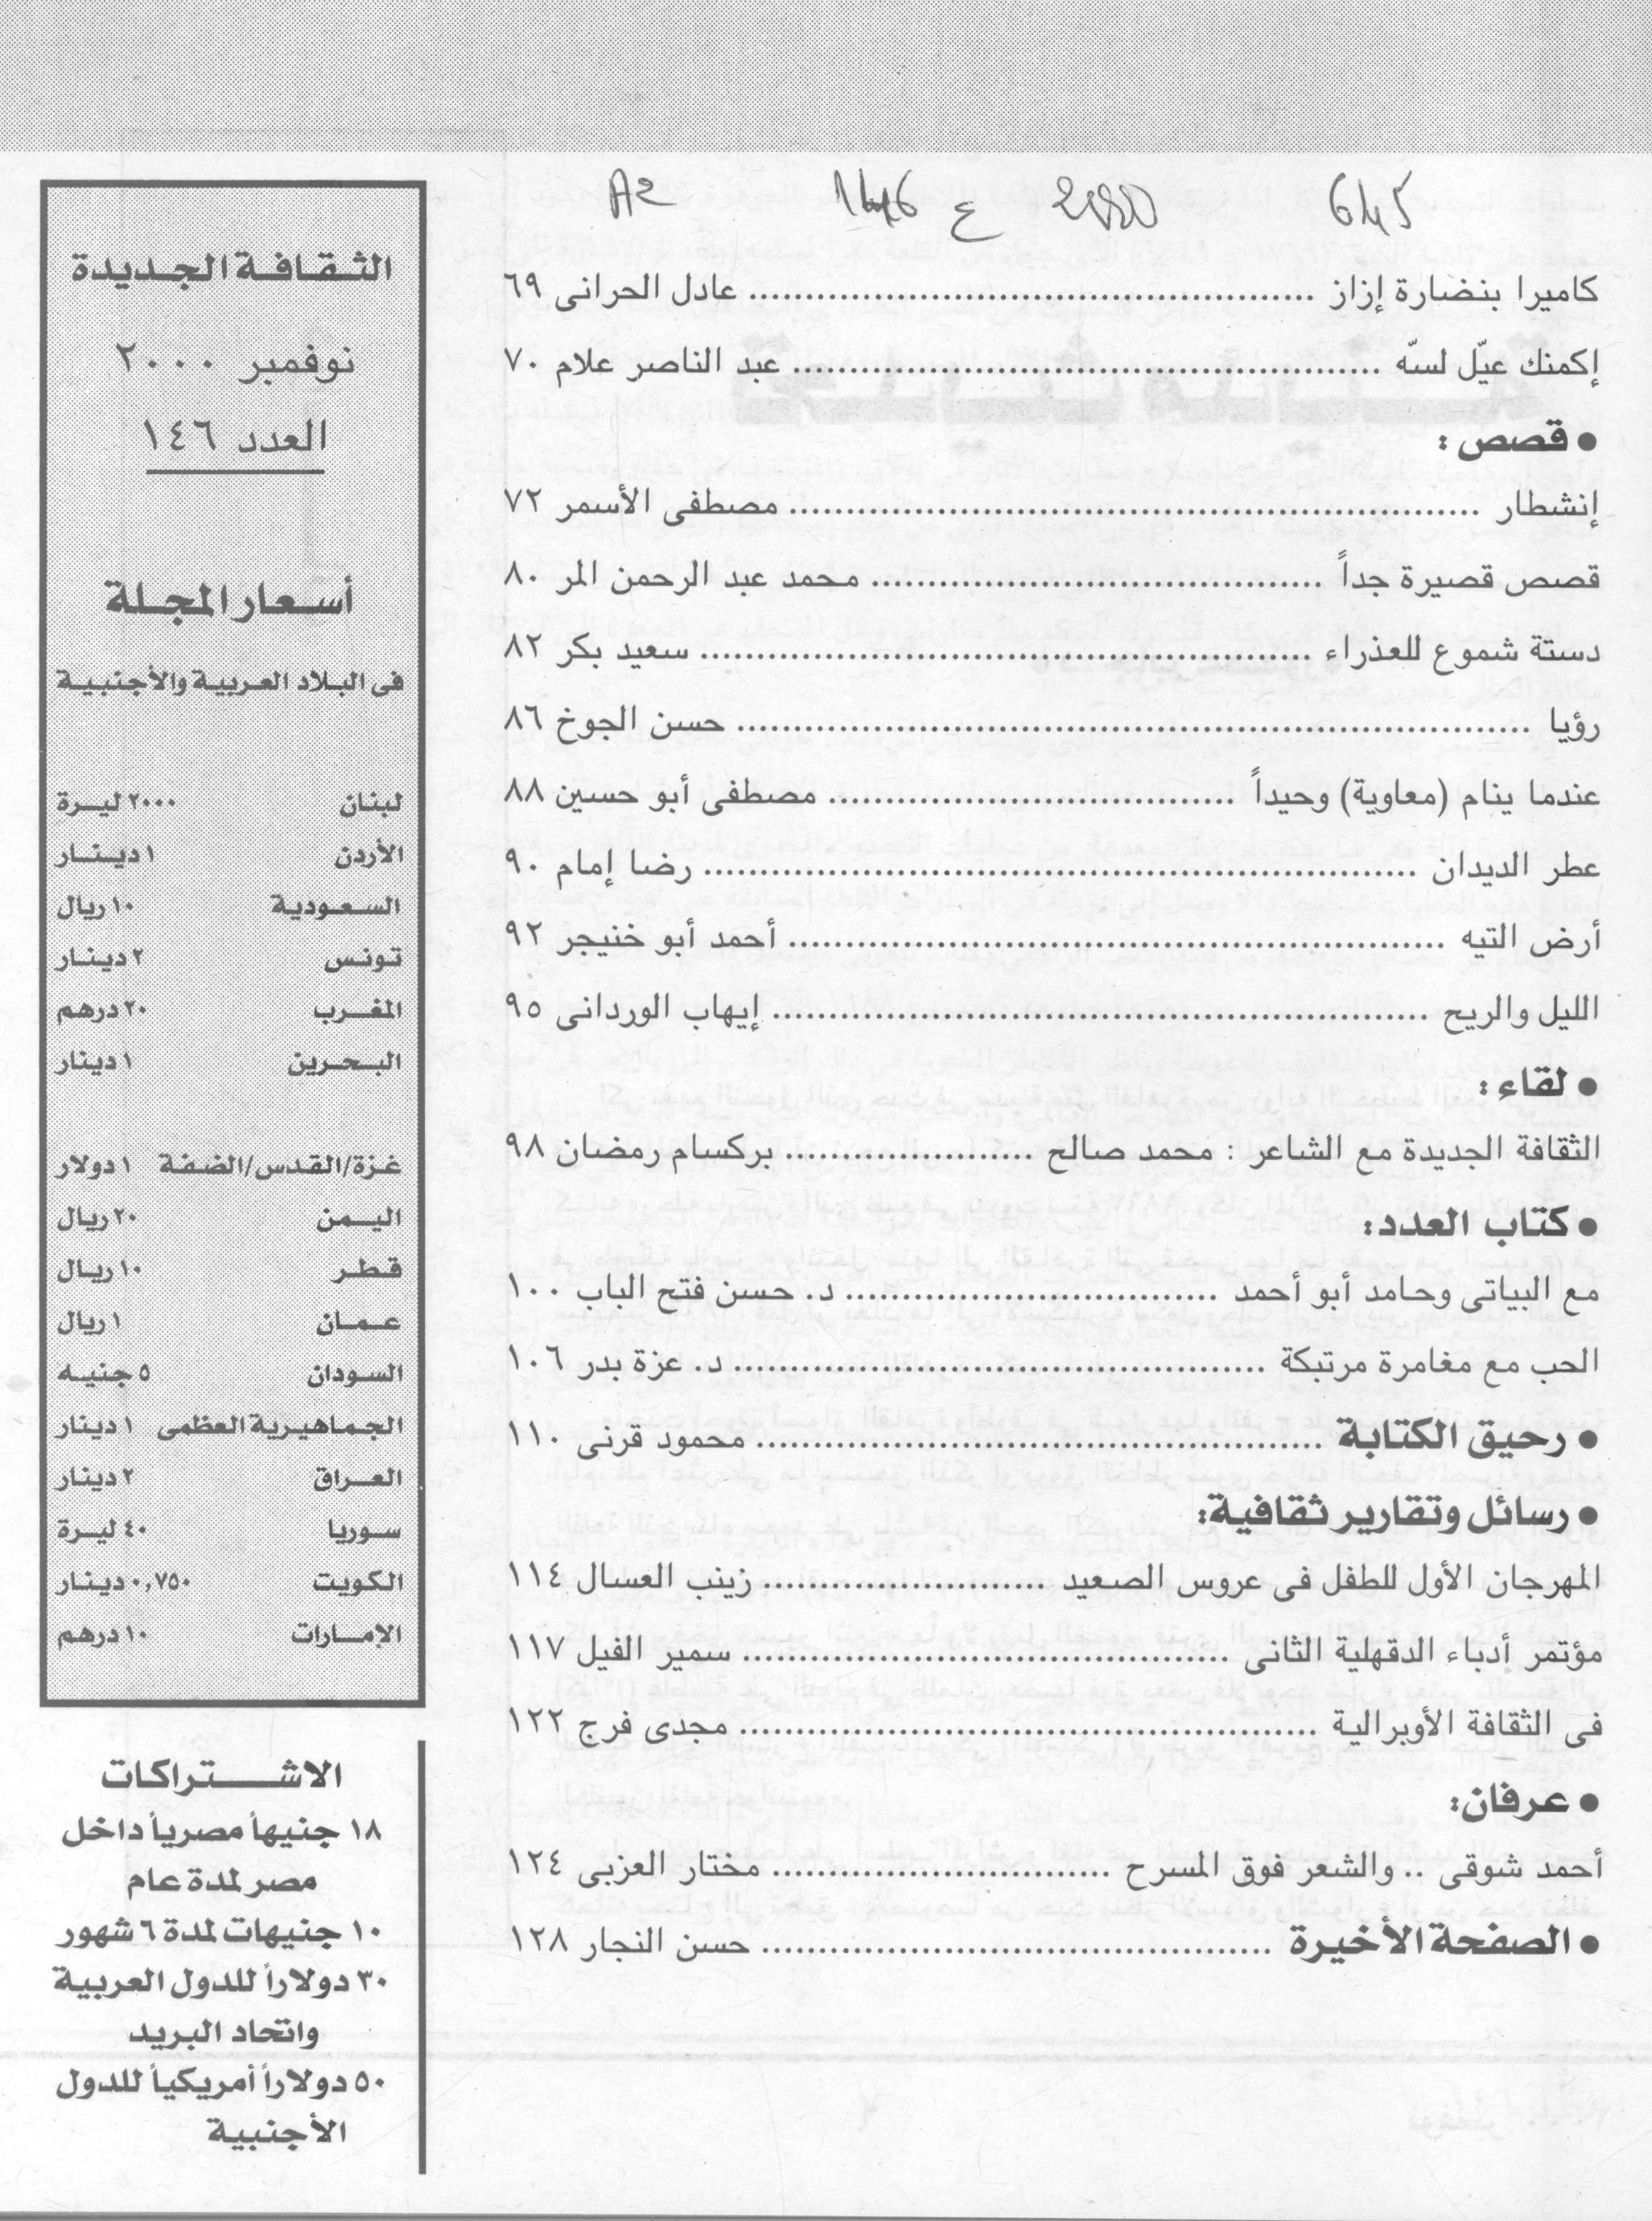 645
2000
ع 146
A2
كاميرا بنضارة إزاز ........ عادل الحرانى ٦٩
إكمنك عيّل لسّه ........ عبد الناصر علام ٧٠
● قصص :
إنشطار ........ مصطفى الأسمر ٧٢
قصص قصيرة جداً ........ محمد عبد الرحمن المر ٨٠
دستة شموع للعذراء ........ سعيد بكر ٨٢
رؤيا ........ حسن الجوخ ٨٦
عندما ينام (معاوية) وحيداً ........ مصطفى أبو حسين ٨٨
عطر الديدان ........ رضا إمام ٩٠
أرض التيه ........ أحمد أبو خنيجر ٩٢
الليل والريح ........ إيهاب الوردانى ٩٥
● لقاء :
الثقافة الجديدة مع الشاعر : محمد صالح ........ بركسام رمضان ٩٨
● كتاب العدد:
مع البياتى وحامد أبو أحمد ........ د. حسن فتح الباب ١٠٠
الحب مع مغامرة مرتبكة ........ د. عزة بدر ١٠٦
● رحيق الكتابة ........ محمود قرنى ١١٠
● رسائل وتقارير ثقافية:
المهرجان الأول للطفل فى عروس الصعيد ........ زينب العسال ١١٤
مؤتمر أدباء الدقهلية الثانى ........ سمير الفيل ١١٧
فى الثقافة الأوبرالية ........ مجدى فرج ١٢٢
● عرفان:
أحمد شوقى .. والشعر فوق المسرح ........ مختار العزبى ١٢٤
● الصفحة الأخيرة ........ حسن النجار ١٢٨
الثقافة الجديدة
نوفمبر ٢٠٠٠
العدد ١٤٦
أسعار المجلة
فى البلاد العربية والأجنبية
لبنان ٢٠٠٠ ليرة
الأردن ١ دينار
السعودية ١٠ ريال
تونس ٢ دينار
المغرب ٢٠ درهم
البحرين ١ دينار
غزة/القدس/الضفة ١ دولار
اليمن ٢٠ ريال
قطر ١٠ ريال
عمان ١ ريال
السودان ٥ جنيه
الجماهيرية العظمى ١ دينار
العراق ٢ دينار
سوريا ٤٠ ليرة
الكويت ٠,٧٥٠ دينار
الإمارات ١٠ درهم
الاشتراكات
١٨ جنيهاً مصرياً داخل
مصر لمدة عام
١٠ جنيهات لمدة ٦ شهور
٣٠ دولاراً للدول العربية
واتحاد البريد
٥٠ دولاراً أمريكياً للدول
الأجنبية